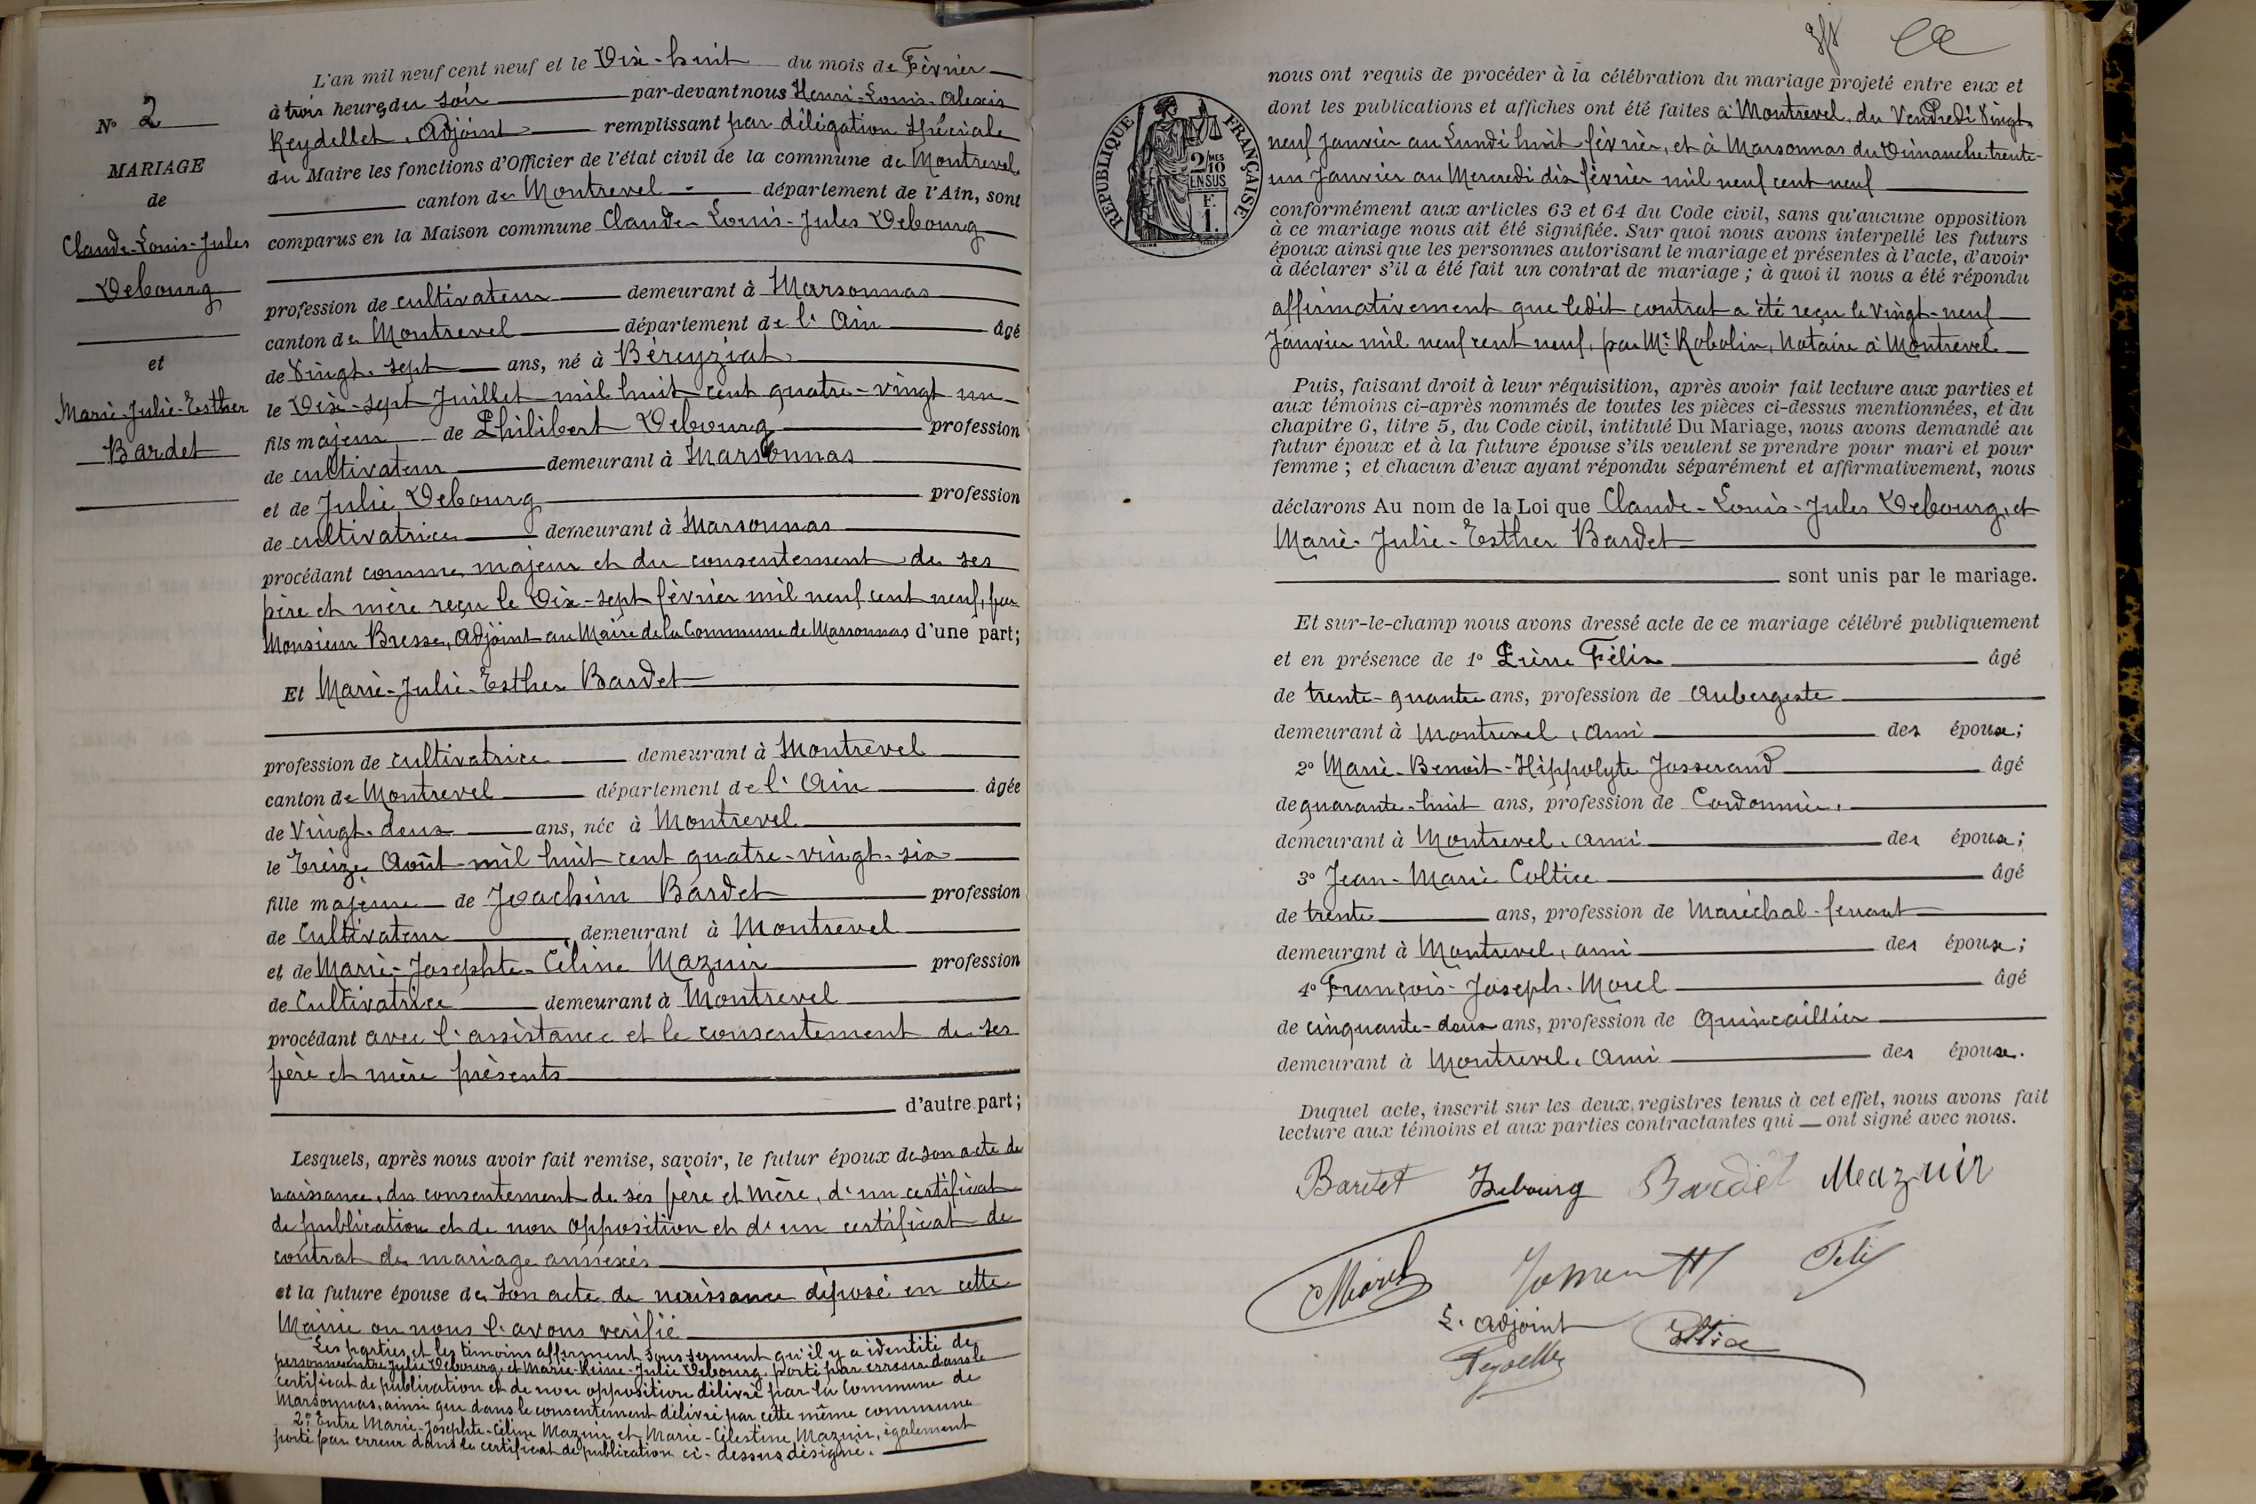 N° 2
MARIAGE
de
Claude-Louis-Jules
Debourg
et
Marie-Julie-Esther
Bardet
L'an mil neuf cent neuf et le Dix-huit du mois de Février
à trois heures du soir par-devant nous Henri-Louis-Alexis
Reydellet, Adjoint remplissant par délégation spéciale
du Maire les fonctions d'Officier de l'état civil de la commune de Montrevel
canton de Montrevel département de l'Ain, sont
comparus en la Maison commune Claude-Louis-Jules Debourg
profession de cultivateur demeurant à Marsonnas
canton de Montrevel département de l'Ain âgé
de Vingt-sept ans, né à Béreyziat
le Dix-sept Juillet mil huit cent quatre-vingt un
fils majeur de Philibert Debourg profession
de cultivateur demeurant à Marsonnas
et de Julie Debourg profession
de cultivatrice demeurant à Marsonnas
procédant comme majeur et du consentement de ses
père et mère reçu le Dix-sept février mil neuf cent neuf, par
Monsieur Bresse, Adjoint au Maire de la Commune de Marsonnas d'une part;
Et Marie-Julie-Esther Bardet
profession de cultivatrice demeurant à Montrevel
canton de Montrevel département de l'Ain âgée
de Vingt-deux ans, née à Montrevel
le Treize Août mil huit cent quatre-vingt-six
fille majeure de Joachim Bardet profession
de Cultivateur demeurant à Montrevel
et de Marie-Josephte-Céline Mazuir profession
de Cultivatrice demeurant à Montrevel
procédant avec l'assistance et le consentement de ses
père et mère présents
d'autre part;
Lesquels, après nous avoir fait remise, savoir, le futur époux de son acte de
naissance, du consentement de ses père et mère, d'un certificat
de publication et de non opposition et d'un certificat de
contrat de mariage annexés
et la future épouse de son acte de naissance déposé en cette
Mairie ou nous l'avons vérifié
Les parties et les témoins affirment sous serment qu'il y a identité de
personne entre Julie Debourg et Marie-Reine-Julie Debourg, porté par erreur dans le
certificat de publication et de non opposition délivré par la Commune de
Marsonnas, ainsi que dans le consentement délivré par cette même commune
2° Entre Marie-Josephte-Céline Mazuir et Marie-Célestine Mazuir, également
porté par erreur dans le certificat de publication ci-dessus désigné.
RÉPUBLIQUE FRANÇAISE
2/10 MES
EN SUS
F.
1.
nous ont requis de procéder à la célébration du mariage projeté entre eux et
dont les publications et affiches ont été faites à Montrevel, du Vendredi Vingt-
neuf Janvier au Lundi huit février, et à Marsonnas du Dimanche trente-
un Janvier au Mercredi dix février mil neuf cent neuf
conformément aux articles 63 et 64 du Code civil, sans qu'aucune opposition
à ce mariage nous ait été signifiée. Sur quoi nous avons interpellé les futurs
époux ainsi que les personnes autorisant le mariage et présentes à l'acte, d'avoir
à déclarer s'il a été fait un contrat de mariage; à quoi il nous a été répondu
affirmativement que ledit contrat a été reçu le vingt-neuf
Janvier mil neuf cent neuf, par Me Robolin, Notaire à Montrevel
Puis, faisant droit à leur réquisition, après avoir fait lecture aux parties et
aux témoins ci-après nommés de toutes les pièces ci-dessus mentionnées, et du
chapitre 6, titre 5, du Code civil, intitulé Du Mariage, nous avons demandé au
futur époux et à la future épouse s'ils veulent se prendre pour mari et pour
femme; et chacun d'eux ayant répondu séparément et affirmativement, nous
déclarons Au nom de la Loi que Claude-Louis-Jules Debourg, et
Marie-Julie-Esther Bardet
sont unis par le mariage.
Et sur-le-champ nous avons dressé acte de ce mariage célébré publiquement
et en présence de 1° Pierre Félix âgé
de trente-quatre ans, profession de Aubergiste
demeurant à Montrevel, ami des époux;
2° Marie-Benoit-Hippolyte Josserand âgé
de quarante-huit ans, profession de Cordonnier,
demeurant à Montrevel, ami des époux;
3° Jean-Marie Coltice âgé
de trente ans, profession de Maréchal-ferrant
demeurant à Montrevel, ami des époux;
4° François-Joseph Morel âgé
de cinquante-deux ans, profession de Quincaillier
demeurant à Montrevel, ami des époux.
Duquel acte, inscrit sur les deux registres tenus à cet effet, nous avons fait
lecture aux témoins et aux parties contractantes qui ont signé avec nous.
Bardet Debourg Bardet Mazuir
Morel Félix
L'Adjoint Coltice
Reydellet